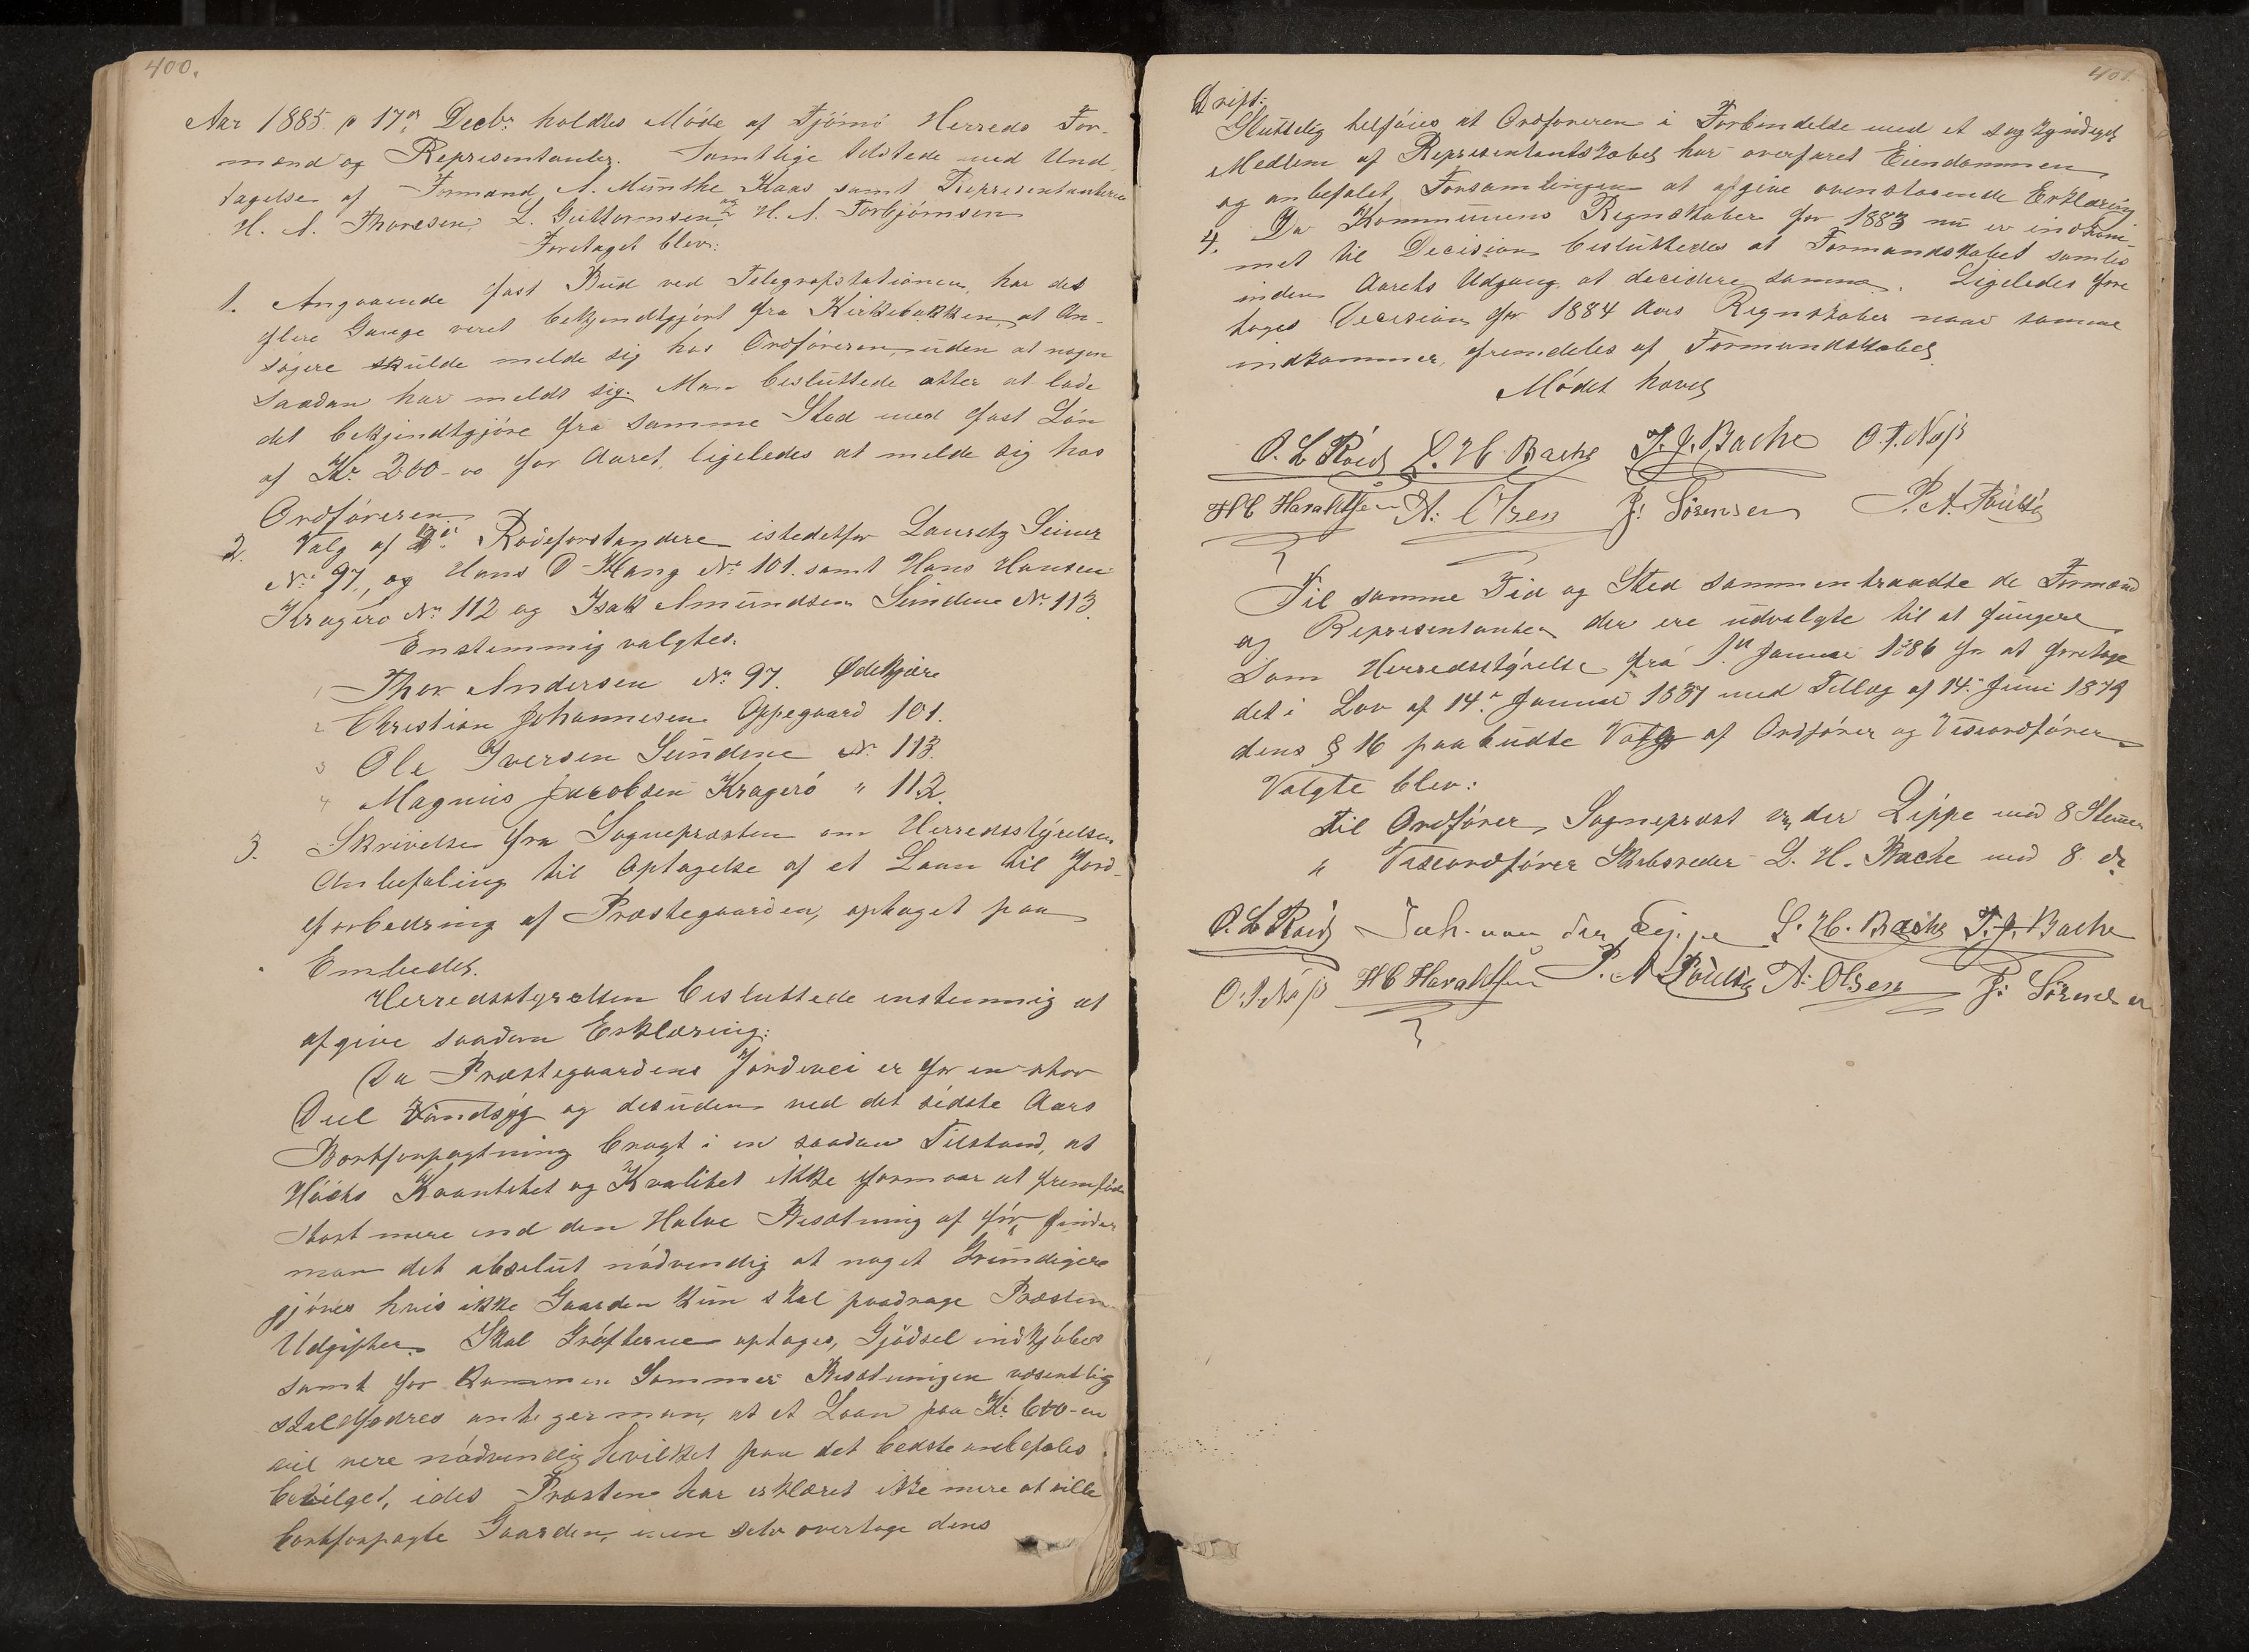 400.
Aar 1885 p 17de Decbr holdtes Møde af Tjømø Herreds For-
mænd og Repræsentanter. Samtlige tilstede med Und-
tagelse af Formand A. Munthe Kaas samt Repræsentanterne
H. A. Thoresen, L. Guttormsen og H. A. Torbjørnsen
Foretaget blev:
1. Angaaende fast Bud ved Telegrafstationen, har det
flere Gange veret bekjendtgjort fra Kirkebakken, at An-
søgere skulde melde sig hos Ordføreren, uden at nogen
Saadan har meldt sig. Man besluttede atter at lade
det bekjendtgjøre fra samme Sted med fast Løn
af Kr. 200-00 for Aaret, ligeledes at melde sig hos
Ordføreren
2. Valg af Rodeforstandere istedetfor Lauretz
No 97, og Hans D Haug No 101. samt Hans Hansen
Kragerø No 112 og Isak Amundsen Sundene No 113.
Enstemmig valgtes.
1 Thor Andersen No 97. Ødekjære
2 Christian Johannesen Oppegaard 101.
3 Ole Iversen Sundene No 113.
4 Magnus Jacobsen Kragerø " 112.
3. Skrivelse fra Sognepræsten om Herredsstyrelsens
Anbefaling til Optagelse af et Laan til Jord-
forbedring af Præstegaarden, optaget paa
Embedet.
Herredsstyrelsen besluttede enstemmig at
afgive saadan Erklæring:
Da Præstegaardens Jordvei er for en stor
Deel Vandsyg og desuden ved det sidste Aars
Bortforpagtning bragt i en saadan Tilstand, at
Høets Kvantitet og Kvalitet ikke formaar at fremføde
stort mere end den Halve Besætning af før, finder
man det absolut nødvendig at noget Grundigere
gjøres hvis ikke Gaarden kun skal paadrage Præsten
Udgifter. Skal Grøfterne optages, Gjødsel indkjøbes
samt for Sommer Besætningen væsentlig
staldfodres antager man, at et Laan paa Kr. 600-00
vil være nødvendig hvilket paa det bedste anbefales
bevilget, idet Præsten har erklæret ikke mere at ville
bortforpagte Gaarden, men selv overtage dens
401.
Drift.
Sluttelig tilføies at Ordføreren i Forbindelse med et sagkyndigt
Medlem af Repræsentantskabet har overfaret Eiendommen
og anbefalet Forsamlingen at afgive ovenstaaende Erklæring
4. Da Kommunens Regnskaber for 1883 nu er indkom-
met til Decision besluttedes at Formandskabet samles
inden Aarets Udgang at decidere samme. Ligeledes fore-
tages Decision for 1884 Aars Regnskaber naar samme
indkommer, fremdeles af Formandskabet
Mødet hævet
O. L. Røed L. H. Bache T. J. Bache O. T. Nøis
H C Haraldsen A: Olsen J: Sørensen P. A. Poulsen
Til samme Tid og Sted sammentraadte de Formænd
og Repræsentanter der ere udvalgte til at fungere
som Herredsstyrelse fra 1ste Januar 1886 for at foretage
det i Lov af 14de Januar 1837 med Tillæg af 14de Juni 1879
dens § 16 paabudte Valg af Ordfører og Viseordfører
Valgte blev:
Til Ordfører, Sogneprest v. der Lippe med 8 Stemmer
" Viseordfører Skibsreder L. H. Bache med 8 do
O. L. Røed Joh. von der Lippe L. H. Bache T. J. Bache
O. T. Nøis H C Haraldsen P. A Poulsen A: Olsen J: Sørensen